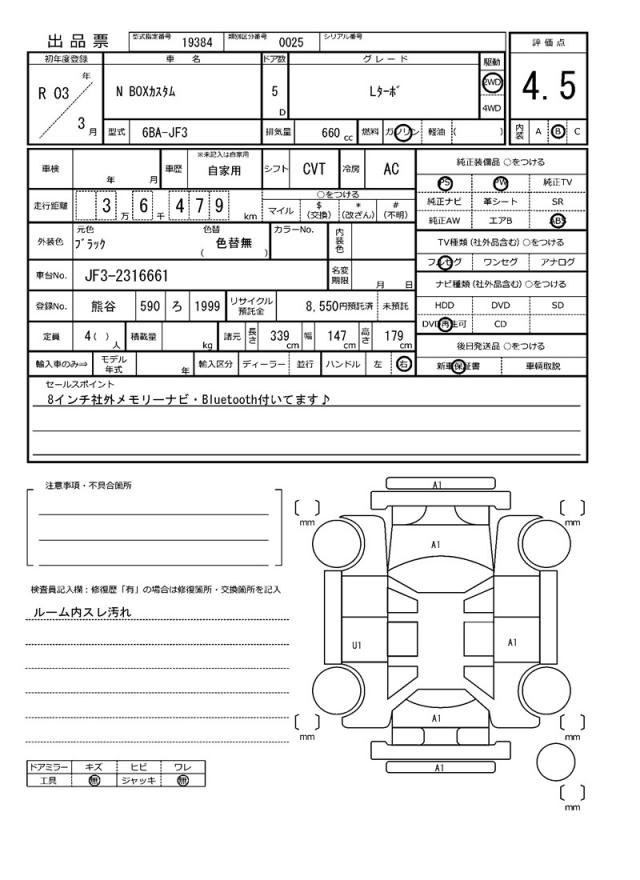 出品票 型式指定番号 19384 類別区分番号 0025 シリアル番号
評価点
4.5
内装 A B C
初年度登録 車名 ドア数 グレード 駆動
R 03 年 3 月
N BOXカスタム 5 D Lターボ 2WD 4WD
型式 6BA-JF3 排気量 660 cc 燃料 ガソリン 軽油 ( )
車検 年 月 車歴 ※未記入は自家用 自家用 シフト CVT 冷房 AC
走行距離 3 万 6 千 4 7 9 km
○をつける
マイル $ (交換) * (改ざん) # (不明)
外装色 元色 ブラック 色替 ( 色替無 ) カラーNo. 内装色
車台No. JF3-2316661 名変期限 月 日
登録No. 熊谷 590 ろ 1999 リサイクル預託金 8,550円預託済 未預託
定員 4( ) 人 積載量 kg 諸元 長さ 339 cm 幅 147 cm 高さ 179 cm
輸入車のみ⇒ モデル年式 年 輸入区分 ディーラー 並行 ハンドル 左 右
純正装備品 ○をつける
PS PW 純正TV
純正ナビ 革シート SR
純正AW エアB ABS
TV種類 (社外品含む) ○をつける
フルセグ ワンセグ アナログ
ナビ種類 (社外品含む) ○をつける
HDD DVD SD
DVD再生可 CD
後日発送品 ○をつける
新車保証書 車輌取説
セールスポイント
8インチ社外メモリーナビ・Bluetooth付いてます♪
注意事項・不具合箇所
検査員記入欄：修復歴「有」の場合は修復箇所・交換箇所を記入
ルーム内スレ汚れ
ドアミラー キズ ヒビ ワレ
工具 無 ジャッキ 無
A1
mm mm
A1
U1 A1
A1
mm mm
A1
mm